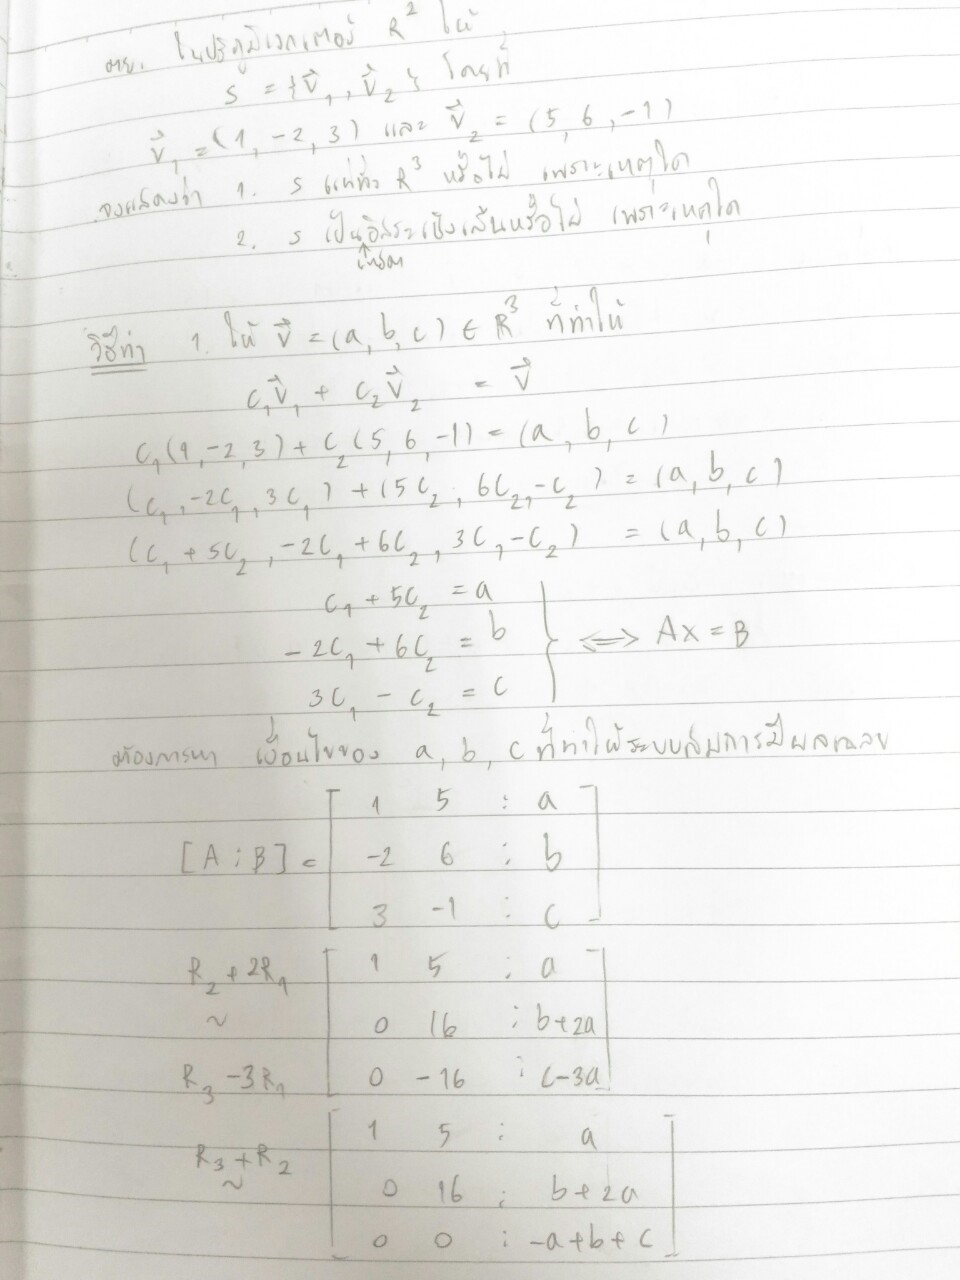 ตย. ในปริภูมิเวกเตอร์ R² ให้
S = {v⃗₁, v⃗₂} โดยที่
v⃗₁ = (1, -2, 3) และ v⃗₂ = (5, 6, -1)
จงแสดงว่า 1. S แผ่ทั่ว R³ หรือไม่ เพราะเหตุใด
2. S เป็นอิสระเชิงเส้นหรือไม่ เพราะเหตุใด
วิธีทำ 1. ให้ v⃗ = (a, b, c) ∈ R³ ที่ทำให้
c₁v⃗₁ + c₂v⃗₂ = v⃗
c₁(1, -2, 3) + c₂(5, 6, -1) = (a, b, c)
(c₁, -2c₁, 3c₁) + (5c₂, 6c₂, -c₂) = (a, b, c)
(c₁ + 5c₂, -2c₁ + 6c₂, 3c₁ - c₂) = (a, b, c)
c₁ + 5c₂ = a
-2c₁ + 6c₂ = b ⟺ AX = B
3c₁ - c₂ = c
ต้องการหา เงื่อนไขของ a, b, c ที่ทำให้ระบบสมการมีผลเฉลย
1 5 : a
[A : B] = -2 6 : b
3 -1 : c
R₂ + 2R₁ 1 5 : a
~ 0 16 : b+2a
R₃ - 3R₁ 0 -16 : c-3a
1 5 : a
R₃ + R₂ ~ 0 16 : b+2a
0 0 : -a+b+c